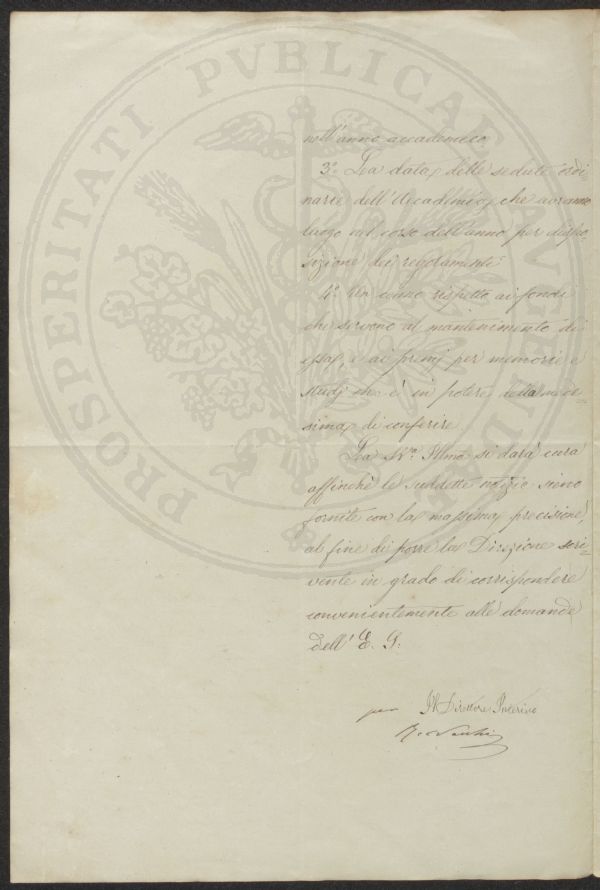 PROSPERITATI PVBLICAE AVGENDAE
nell'anno accademico
3.o La data delle sedute ordi-
narie dell'Accademia, che avranno
luogo nel corso dell'anno per dispo-
sizione dei regolamenti
4.o Un cenno rispetto ai fondi
che servono al mantenimento di
essa, e ai premj per memorie e
studj che è in potere della mede-
sima di conferire.
La S.V.a Illma si darà cura
affinchè le suddette notizie sieno
fornite con la massima precisione,
al fine di porre la Direzione scri-
vente in grado di corrispondere
convenientemente alle domande
dell'E. S:
per Il Direttore Interino